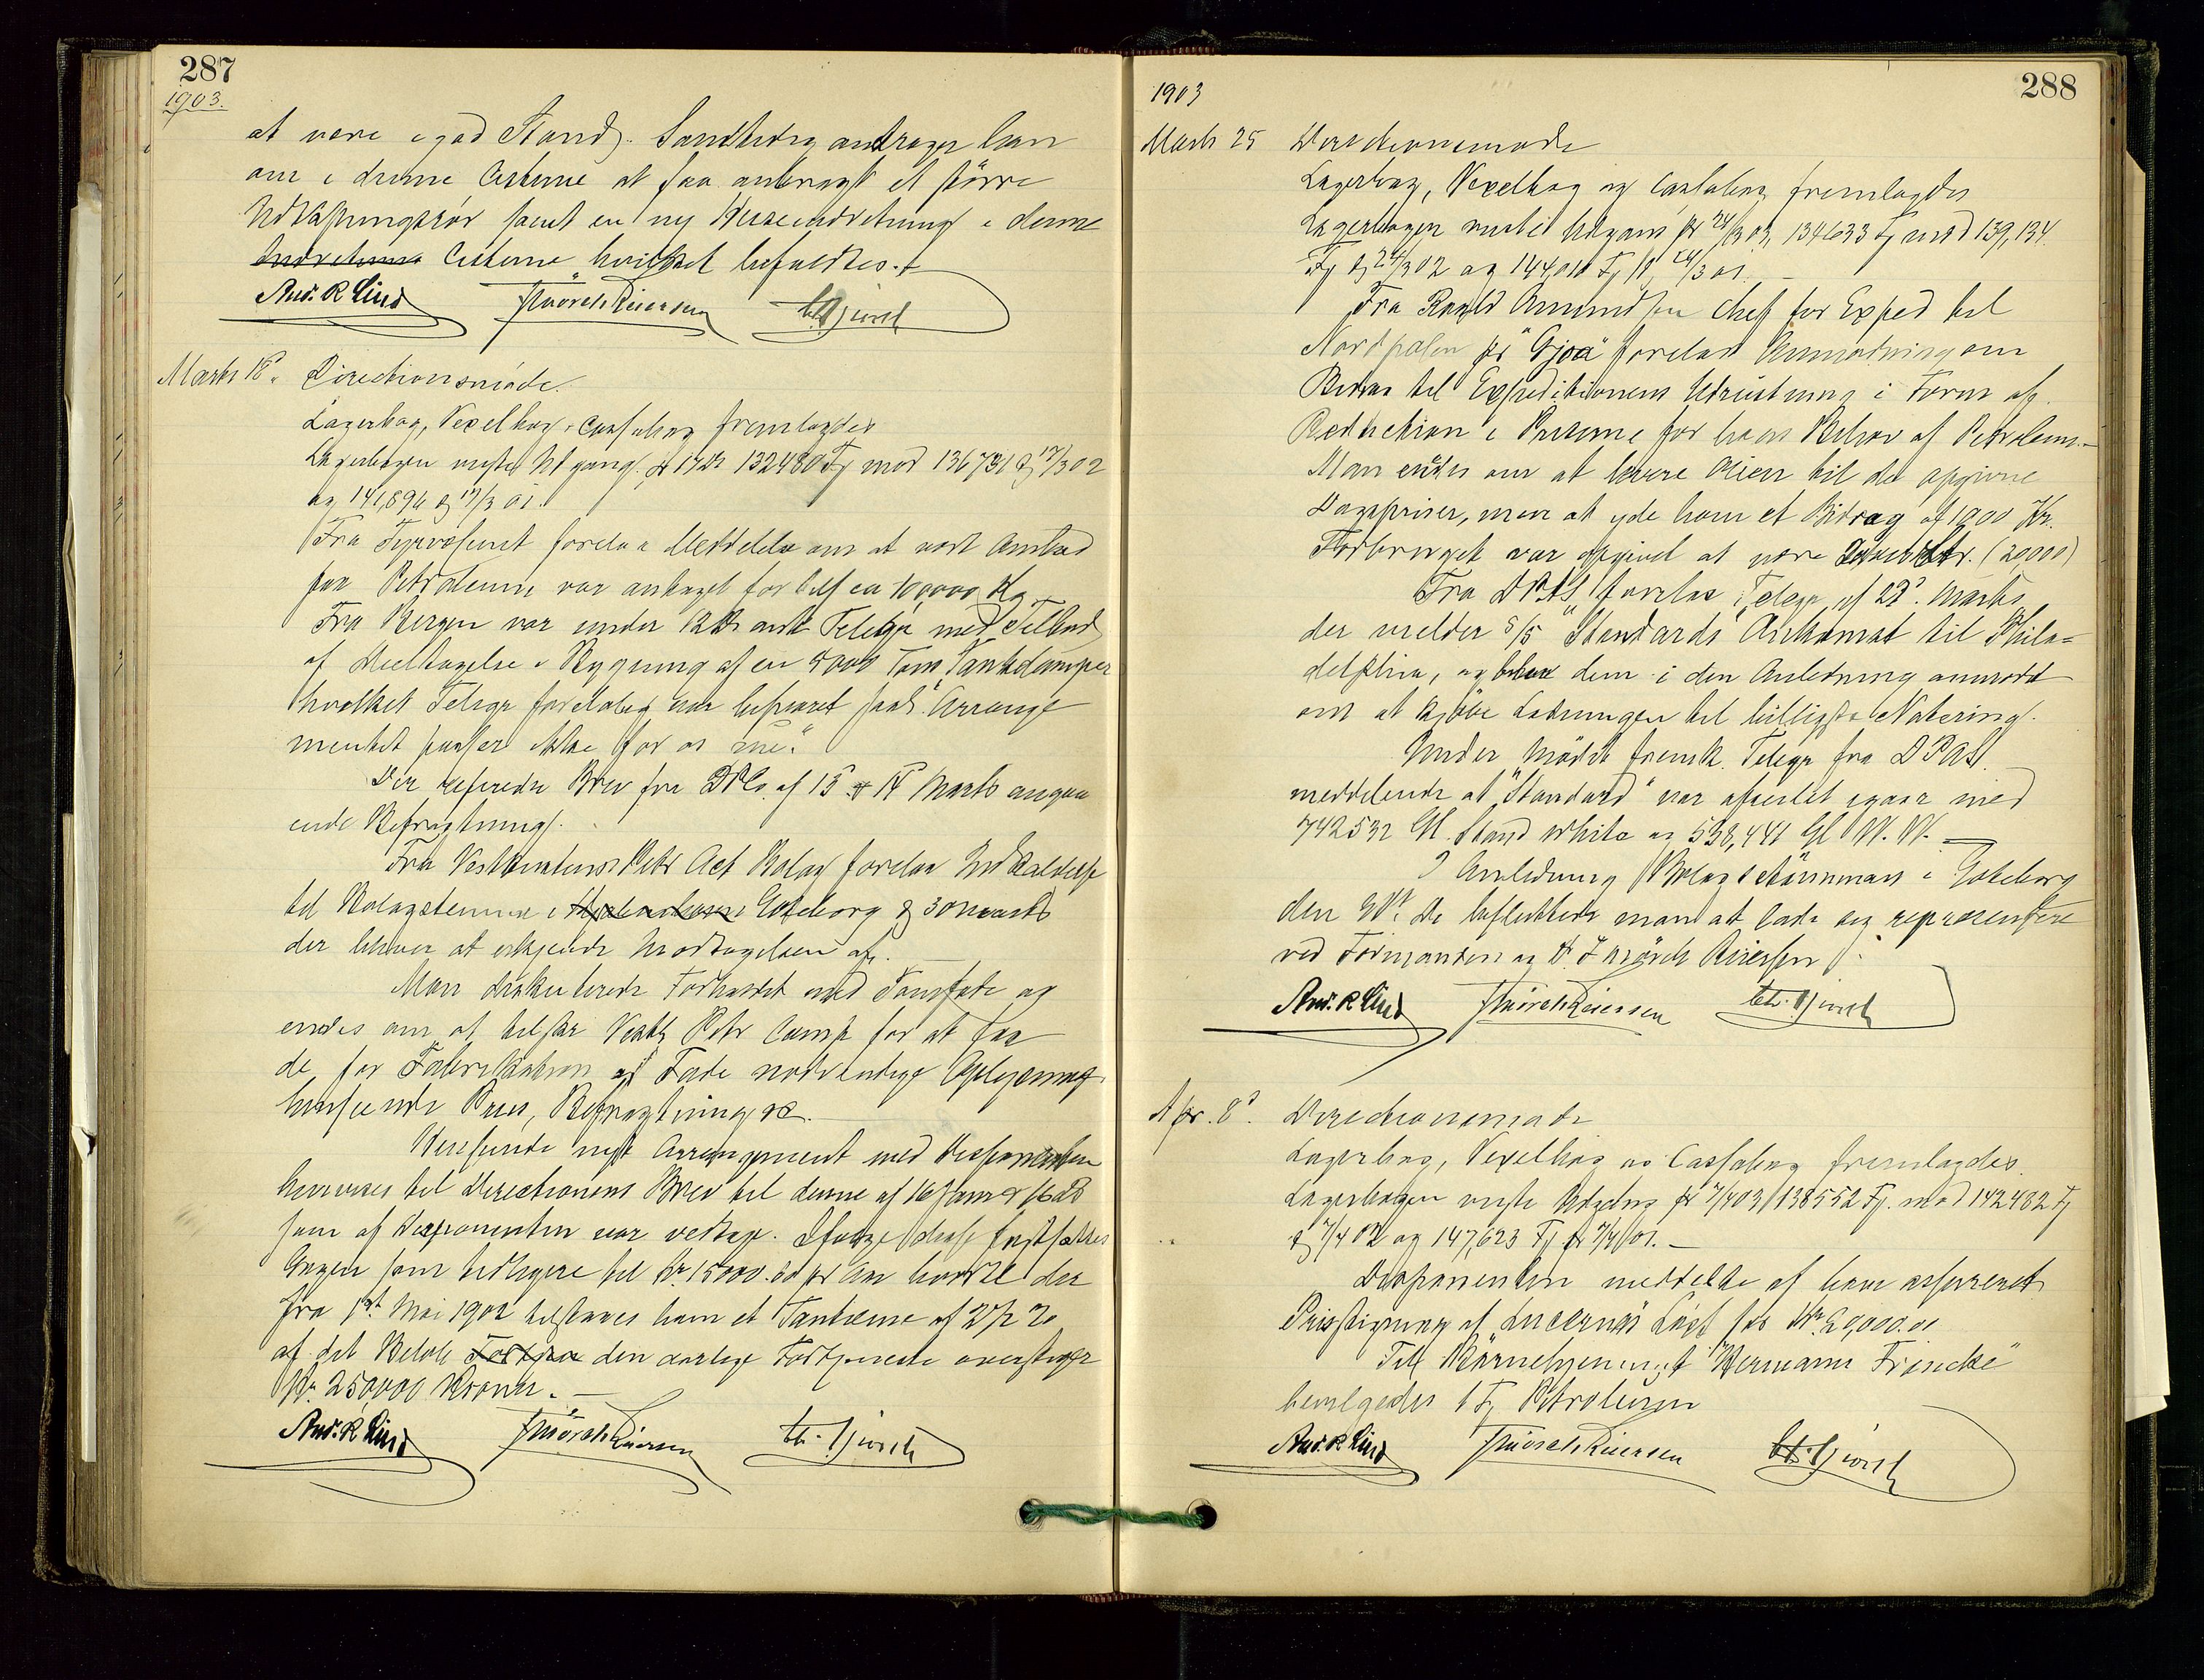 287
1903.
at være i god Stand. Samtidig androges han
om i denne Cisterne at faa anbragt et større
Udløbningsrør samt en ny Heiseindretning i denne
Indretning Cisterne hvilket bifaldtes.
And. R Lind JMörch Reiersen
Marts 18. Directionsmøde.
Lagerbog, Vexelbog, Cassabog fremlagdes
Lagerbogen viste Udgang pr 17 ds 132480 Fj mod 136731 pr 17/3 02
og 141,896 pr 17/3 01.
Fra Fyrvæsenet forelaa Meddelelse om at vort Anbud
paa Petroleum var antaget for ca 100000 Kg
Fra Bergen var under 12 ds Telegr med Tilbud
af Deeltagelse i Bygning af en 5000 Tons Tankdamper
hvilket Telegr foreløbig var besvaret paa "Arrange
mentet passer ikke for os nu."
Der refereredes Brev fra DPCo. af 13 & 14 Marts angaa
ende Befragtning.
Fra Vestkustens Petr Act Bolag forelaa Indkaldelse
til Bolagstemma i Göteborg pr 30 marts
der bliver at erkjende Modtagelsen af.
Man diskuterede Forholdet med Tomfade og
enedes om at tilskr Vestl Petr Comp for at faa
de for Fabrikation af Fade nødvendige Oplysning
hensyende Priser, Befragtning &c.
Vedrørende nyt Arrangement med Disponenten
henvises til Directionens Brev til denne af 16 Januar & 16 ds
som af Disponenten var vedtage. Ifølge disse fastsættes
Gagen som tidligere til Kr 15000.00 pr Aar hvortil der
fra 1st Mai 1902 tilstaaes ham et Tantieme af 2 1/2 %
af det Beløb den aarlige Fortjeneste overstiger
Kr 250,000 Kroner.
And. R Lind JMörch Reiersen
288
1903
Marts 25 Directionsmøde
Lagerbog, Vexelbog og Cassabog fremlagdes
Lagerbogen viste Udgang pr 24/3 03, 134633 Fj mod 139,134
Fj pr 24/3 02 og 144,010 Fj pr 24/3 01.
Fra Roald Amundsen Chef for Exped til
Nordpolen pr "Gjøa" forelaa Anmodning om
Bidrag til Expeditionens Udrustning i Form af
Reduction i Priserne for hans Behov af Petroleum.
Man enedes om at levere Olien til de opgivne
Dagspriser, men at yde ham et Bidrag af 1000 Kr.
Forbruget var opgivet at være Ltr. (20000)
Fra DPAS forelaa Telegr af 23. Marts
der melder S/S "Standards" Ankomst til Phila=
delphia, og blev dem i den Anledning anmodet
om at kjöbe Ladningen til billigste Notering.
Under Mødet fremk. Telegr fra DPAS.
meddelende at "Standard" var afseilet igaar med
742532 Gl. Stand white og 538,441 Gl W. W.
I Anledning Bolagsstämman i Göteborg
den 30te ds besluttede man at lade sig representere
ved Formanden og Hr J Mörch Reiersen
And. R Lind JMörch Reiersen
Apr. 8. Directionsmøde
Lagerbog, Vexelbog og Cassabog fremlagdes.
Lagerbogen viste Udgang pr 7/4 03 138552 Fj. mod 142432 Fj
pr 7/4 02 og 147,623 Fj pr 7/4 01.
Disponenten meddelte at have assureret
Prisstigning af Lucernas Last for Kr. 20,000.00
Til Börnehjemmet "Hermann Frencke"
bevilgedes 1 Fj Petroleum
And. R Lind JMörch Reiersen